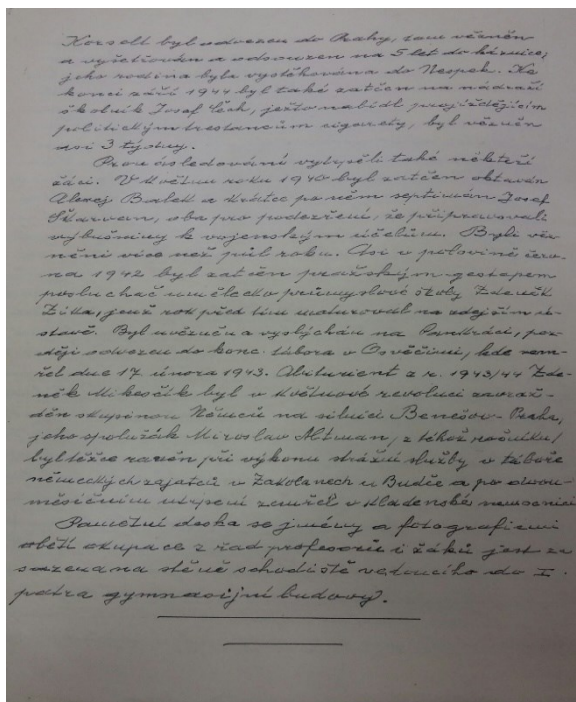 Korselt byl odvezen do Prahy, tam vězněn
a vyšetřován a odsouzen na 5 let do káznice,
jeho rodina byla vystěhována do Nespek. Ke
konci září 1944 byl také zatčen na nádraží
školník Josef Čech, ježto nabídl projíždějícím
politickým trestancům cigarety, byl vězněn
asi 3 týdny.
Pronásledování vytrpěli také někteří
žáci. V květnu roku 1940 byl zatčen oktaván
Alexej a krátce po něm septimán Josef
Škarvan, oba pro podezření, že připravovali
výbušniny k vojenským účelům. Byli věz-
něni více než půl roku. Asi v polovině červ-
na 1942 byl zatčen pražským gestapem
posluchač umělecko průmyslové školy Zdeněk
Zíka, jenž rok před tím maturoval na zdejším ú-
stavě. Byl uvězněn a vyslýchán na Pankráci, poz-
ději odvezen do konc. tábora v Osvěčimi, kde zem-
řel dne 17. února 1943. Abiturient z r. 1943/44 Zde-
něk Mikesčík byl v květnové revoluci zavraž-
děn skupinou Němců na silnici Benešov-Praha,
jeho spolužák Miroslav Altman, z téhož ročníku,
byl těžce raněn při výkonu strážní služby v táboře
německých zajatců v Zákolanech u Budče a po dvou-
měsíčním utrpení zemřel v kladenské nemocnici.
Pamětní deska se jmény a fotografiemi
obětí okupace z řad profesorů i žáků jest za
sazena na stěně schodiště vedoucího do I.
patra gymnasijní budovy.